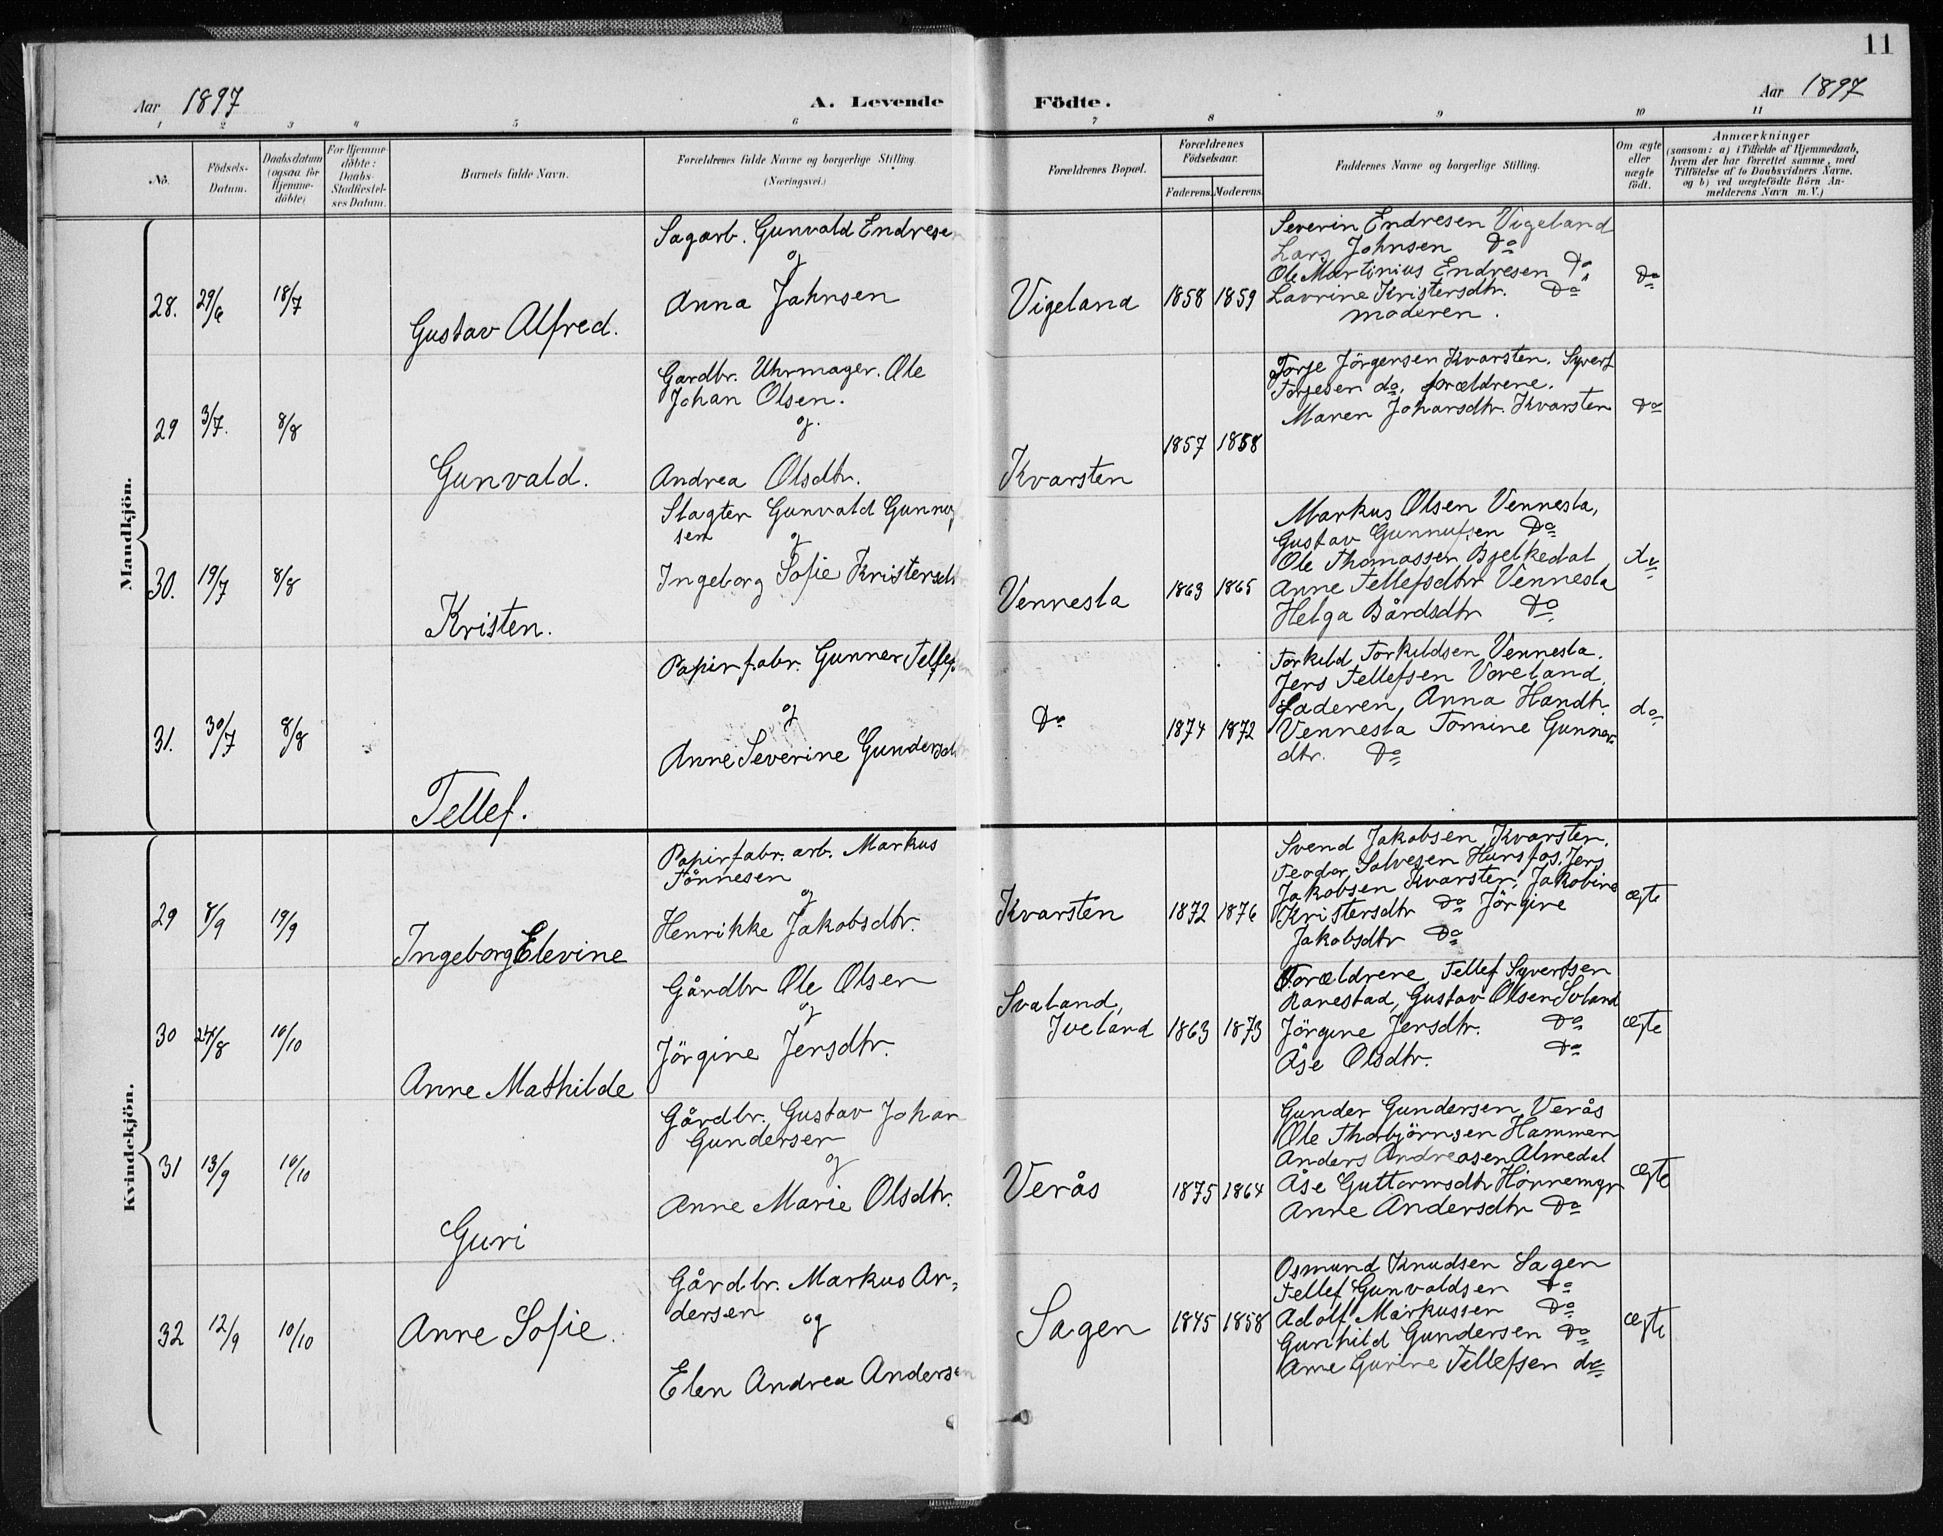 11
Aar 1897
A. Levende Födte.
Aar 1897
1 2 3 4 5 6 7 8 9 10 11
No.
Födsels-
Datum.
Daabsdatum
(ogsaa for
Hjemme-
döbte)
For Hjemme-
döbte:
Daabs-
Stadfæstel-
ses Datum.
Barnets fulde Navn.
Forældrenes fulde Navne og borgerlige Stilling.
(Næringsvei.)
Forældrenes Bopæl.
Forældrenes
Födselsaar.
Faderens. Moderens.
Faddernes Navne og borgerlige Stilling.
Om ægte
eller
uægte
födt.
Anmærkninger
(saasom: a) i Tilfælde af Hjemmedaab,
hvem der har forrettet samme, med
Tilföielse af to Daabsvidners Navne,
og b) ved uægtefödte Börn An-
melderens Navn m. V.)
Mandkjön.
28. 29/6 18/7
Gustav Alfred.
Sagarb. Gunvald Endresen
og
Anna Jahnsen
Vigeland 1858 1859
Severin Endresen Vigeland
Lars Johnsen Do
Ole Martinius Endresen Do
Lavrine Kristensdtr. Do
moderen.
Do
29 3/7. 8/8
Gunvald.
Gardbr. Uhrmager. Ole
Johan Olsen.
og.
Andrea Olsdtr.
Kvarsten
1857 1858
Torje Jörgensen Kvarsten. Syvert
Torjesen do, forældrene.
Maren Johansdtr. Kvarsten
Do
30. 19/7 8/8
Kristen.
Slagter Gunvald Gunnuf
sen og
Ingeborg Sofie Kristensdt
Vennesla 1863 1865
Markus Olsen Vennesla,
Gustav Gunnufsen Do
Ole Thomassen Bjelkedal
Anne Tellefsdtr Vennesla
Helga Bårdsdtr Do
do
31. 30/7 8/8
Tellef.
Papirfabr. Gunner Tellefsen
og
Anne Severine Gundersdt
Do 1874 1872
Torkild Torkildsen Vennesla.
Jens Tellefsen Voreland,
Faderen, Anna Hansdtr.
Vennesla Tomine Gunner-
dtr. Do
do
Kvindekjön.
29 8/9 19/9
Ingeborg Elevine
Papirfabr. arb. Markus
Tönnesen
og
Henrikke Jakobsdtr.
Kvarsten 1872 1876
Svend Jakobsen Kvarsten,
Teodor Salvesen Hunsfos, Jens
Jakobsen Kvarsten, Jakobine
Kristensdtr Do Jörgine
Jakobsdtr Do
ægte
30 24/8 10/10
Anne Mathilde
Gårdbr Ole Olsen
og
Jörgine Jensdtr.
Svaland,
Iveland 1863 1873
Forældrene, Tellef Syvertsen
Ranestad, Gustav Olsen Svland
Jörgine Jensdtr. Do
Åse Olsdtr. Do
ægte
31 13/9 10/10
Guri
Gårdbr. Gustav Johan
Gundersen
og
Anne Marie Olsdtr.
Verås 1875 1864
Gunder Gundersen Verås
Ole Thorbjörnsen Hammen
Anders Andreasen Almedal
Åse Guttormsdtr Hönnemyr
Anne Andersdtr Do
ægte
32 12/9 10/10
Anne Sofie.
Gårdbr. Markus An-
dersen
og
Elen Andrea Andersen
Sagen 1845 1858
Osmund Knudsen Sagen
Tellef Gunvaldsen Do
Adolf Markussen Do
Gunhild Gundersen Do
Anne Gurine Tellefsen do
ægte